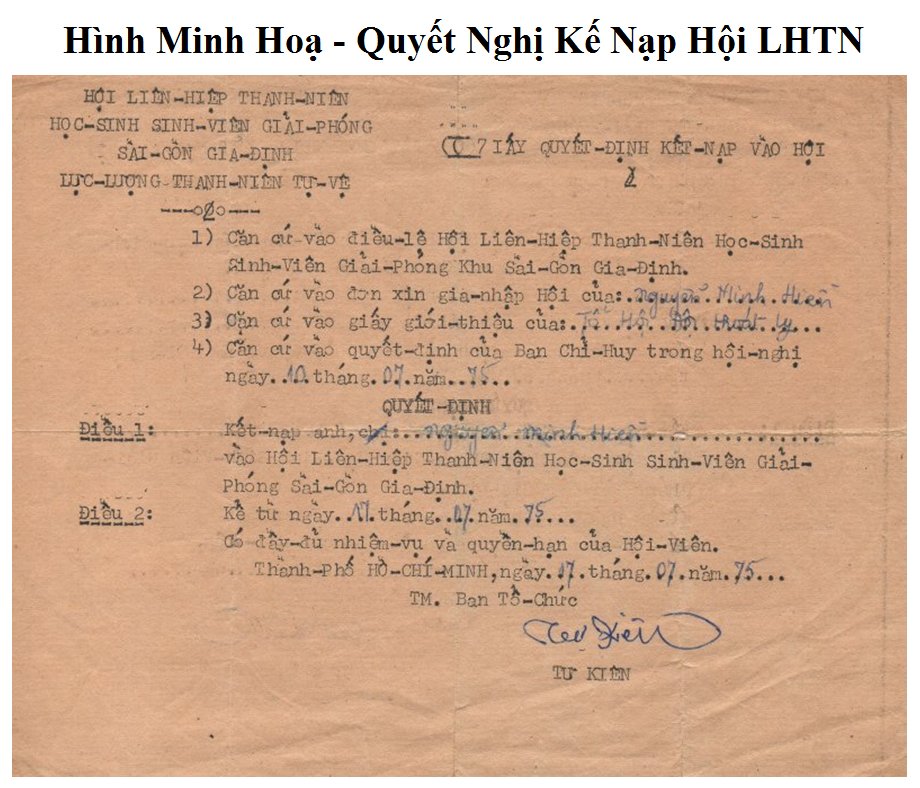 Hình Minh Hoạ - Quyết Nghị Kế Nạp Hội LHTN
HỘI LIÊN-HIỆP THANH-NIÊN
HỌC-SINH SINH-VIÊN GIẢI-PHÓNG
SÀI-GÒN GIA-ĐỊNH
LỰC-LƯỢNG THANH-NIÊN TỰ-VỆ
---o0o---
IẤY QUYẾT-ĐỊNH KẾT-NẠP VÀO HỘI
1) Căn cứ vào điều-lệ Hội Liên-Hiệp Thanh-Niên Học-Sinh
Sinh-Viên Giải-Phóng Khu Sài-Gòn Gia-Định.
2) Căn cứ vào đơn xin gia-nhập Hội của: Nguyễn Minh Hiền
3) Căn cứ vào giấy giới-thiệu của: Tổ Hội thoát ly
4) Căn cứ vào quyết-định của Ban Chỉ-Huy trong hội-nghị
ngày 10 tháng 07 năm 75
QUYẾT-ĐỊNH
Điều 1: Kết-nạp anh, chị: Nguyễn Minh Hiền
vào Hội Liên-Hiệp Thanh-Niên Học-Sinh Sinh-Viên Giải-
Phóng Sài-Gòn Gia-Định.
Điều 2: Kể từ ngày 17 tháng 07 năm 75
Có đầy-đủ nhiệm-vụ và quyền-hạn của Hội-Viên.
Thành-Phố HỒ-CHÍ-MINH, ngày 17 tháng 07 năm 75
TM. Ban Tổ-Chức
TƯ KIÊN